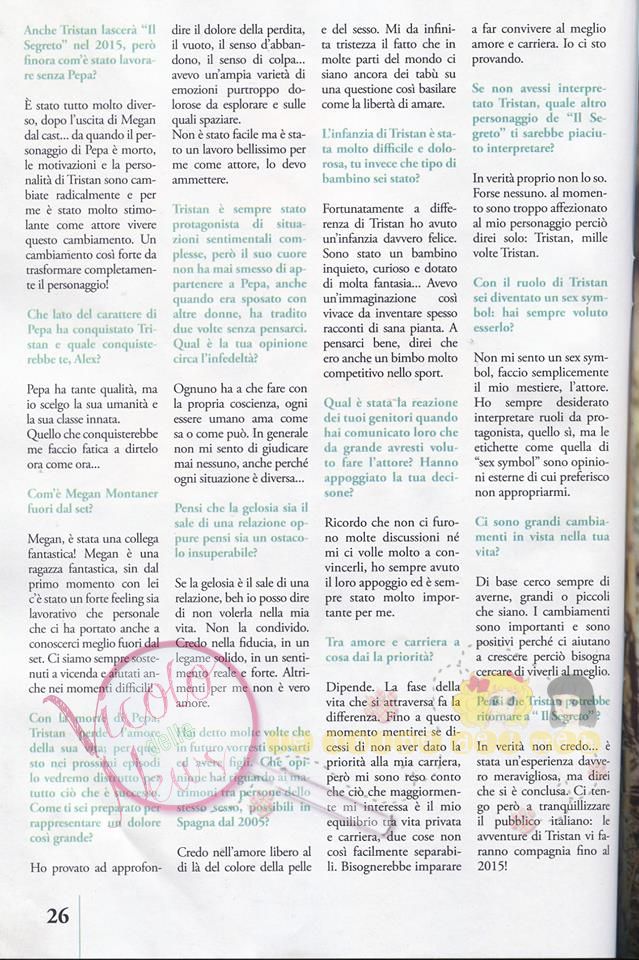 Anche Tristan lascerà “Il
Segreto” nel 2015, però
finora com’è stato lavora-
re senza Pepa?
È stato tutto molto diver-
so, dopo l’uscita di Megan
dal cast... da quando il per-
sonaggio di Pepa è morto,
le motivazioni e la perso-
nalità di Tristan sono cam-
biate radicalmente e per
me è stato molto stimo-
lante come attore vivere
questo cambiamento. Un
cambiamento così forte da
trasformare completamen-
te il personaggio!
Che lato del carattere di
Pepa ha conquistato Tri-
stan e quale conquiste-
rebbe te, Alex?
Pepa ha tante qualità, ma
io scelgo la sua umanità e
la sua classe innata.
Quello che conquisterebbe
me faccio fatica a dirtelo
ora come ora...
Com’è Megan Montaner
fuori dal set?
Megan, è stata una collega
fantastica! Megan è una
ragazza fantastica, sin dal
primo momento con lei
c’è stato un forte feeling sia
lavorativo che personale
che ci ha portato anche a
conoscerci meglio fuori dal
set. Ci siamo sempre soste-
nuti a vicenda e aiutati an-
che nei momenti difficili!
Con la morte di Pepa,
Tristan perde l’amore
della sua vita; per que-
sto nei prossimi episodi
lo vedremo distrutto
tutto ciò che è successo.
Come ti sei preparato per
rappresentare un dolore
così grande?
Ho provato ad approfon-
dire il dolore della perdita,
il vuoto, il senso d’abban-
dono, il senso di colpa...
avevo un’ampia varietà di
emozioni purtroppo do-
lorose da esplorare e sulle
quali spaziare.
Non è stato facile ma è sta-
to un lavoro bellissimo per
me come attore, lo devo
ammettere.
Tristan è sempre stato
protagonista di situa-
zioni sentimentali com-
plesse, però il suo cuore
non ha mai smesso di ap-
partenere a Pepa, anche
quando era sposato con
altre donne, ha tradito
due volte senza pensarci.
Qual è la tua opinione
circa l’infedeltà?
Ognuno ha a che fare con
la propria coscienza, ogni
essere umano ama come
sa o come può. In generale
non mi sento di giudicare
mai nessuno, anche perché
ogni situazione è diversa...
Pensi che la gelosia sia il
sale di una relazione op-
pure pensi sia un ostaco-
lo insuperabile?
Se la gelosia è il sale di una
relazione, beh io posso dire
di non volerla nella mia
vita. Non la condivido.
Credo nella fiducia, in un
legame solido, in un senti-
mento reale e forte. Altri-
menti per me non è vero
amore.
detto molte volte che
in futuro vorresti sposarti
e aver figli. Che opi-
nione hai riguardo ai ma-
trimoni tra persone dello
stesso sesso, possibili in
Spagna dal 2005?
Credo nell’amore libero al
di là del colore della pelle
e del sesso. Mi da infini-
ta tristezza il fatto che in
molte parti del mondo ci
siano ancora dei tabù su
una questione così basilare
come la libertà di amare.
L’infanzia di Tristan è sta-
ta molto difficile e dolo-
rosa, tu invece che tipo di
bambino sei stato?
Fortunatamente a diffe-
renza di Tristan ho avuto
un’infanzia davvero felice.
Sono stato un bambino
inquieto, curioso e dotato
di molta fantasia... Avevo
un’immaginazione così
vivace da inventare spesso
racconti di sana pianta. A
pensarci bene, direi che
ero anche un bimbo molto
competitivo nello sport.
Qual è stata la reazione
dei tuoi genitori quando
hai comunicato loro che
da grande avresti volu-
to fare l’attore? Hanno
appoggiato la tua deci-
sione?
Ricordo che non ci furo-
no molte discussioni né
mi ci volle molto a con-
vincerli, ho sempre avuto
il loro appoggio ed è sem-
pre stato molto impor-
tante per me.
Tra amore e carriera a
cosa dai la priorità?
Dipende. La fase della
vita che si attraversa fa la
differenza. Fino a questo
momento mentirei se di-
cessi di non aver dato la
priorità alla mia carriera,
però mi sono reso conto
che ciò che maggiormen-
te mi interessa è il mio
equilibrio tra vita privata
e carriera, due cose non
così facilmente separabi-
li. Bisognerebbe imparare
a far convivere al meglio
amore e carriera. Io ci sto
provando.
Se non avessi interpre-
tato Tristan, quale altro
personaggio de “Il Se-
greto” ti sarebbe piaciu-
to interpretare?
In verità proprio non lo so.
Forse nessuno. al momen-
to sono troppo affezionato
al mio personaggio perciò
direi solo: Tristan, mille
volte Tristan.
Con il ruolo di Tristan
sei diventato un sex sym-
bol: hai sempre voluto
esserlo?
Non mi sento un sex sym-
bol, faccio semplicemente
il mio mestiere, l’attore.
Ho sempre desiderato
interpretare ruoli da pro-
tagonista, quello sì, ma le
etichette come quella di
“sex symbol” sono opinio-
ni esterne di cui preferisco
non appropriarmi.
Ci sono grandi cambia-
menti in vista nella tua
vita?
Di base cerco sempre di
averne, grandi o piccoli
che siano. I cambiamenti
sono importanti e sono
positivi perché ci aiutano
a crescere perciò bisogna
cercare di viverli al meglio.
Pensi che Tristan potrebbe
ritornare a “Il Segreto”?
In verità non credo... è
stata un’esperienza davve-
ro meravigliosa, ma direi
che si è conclusa. Ci ten-
go però a tranquillizzare
il pubblico italiano: le
avventure di Tristan vi fa-
ranno compagnia fino al
2015!
Vicolo
delle
News
26